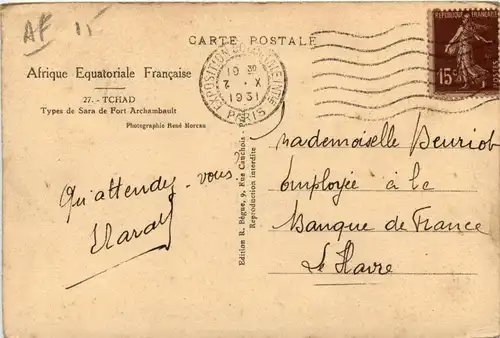 AF 15
CARTE POSTALE
Afrique Equatoriale Française
27. - TCHAD
Types de Sara de Fort Archambault
Photographie René Moreau
EXPOSITION COLONIALE INTle
19 30
7 - X
1931
PARIS
REPUBLIQUE FRANÇAISE
15c
Edition R. Bègue, 9, Rue Cauchois - Paris
Reproduction interdite
Qu'attendez-vous?
Mademoiselle Deuriot
Employée à la
Banque de France
Le Havre